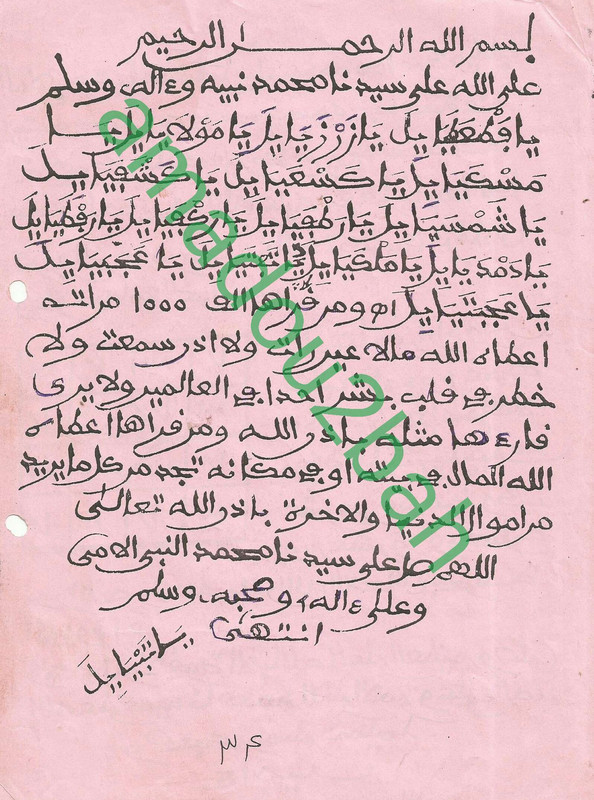 بسم الله الرحمن الرحيم
صلى الله على سيدنا محمد نبيه وءاله وسلم
يا فطعيايل يا زرزيايل يا مولايايل يا
مسكيايل يا كسعيايل يا كشفيايل
يا شمسيايل يا رطبيايل يا ركبيايل يا رفطيايل
يا دمديايل يا ملكيايل يا عجبيايل
يا عجبتيايل اه ومن قراها الف 1000 مرات
اعطاه الله مالا عين رات ولا اذن سمعت ولا
خطر في قلب بشر احدا في العالمين ولا يرى
قارءها مثله باذن الله ومن قراها اعطاه
الله المال في بيته او في مكانه تجد من كل ما يريد
من اموال الدنيا والاخرة باذن الله تعالى
اللهم صل على سيدنا محمد النبي الامي
وعلى ءاله وصحبه وسلم
انتهى
٣٤
amadou2bah